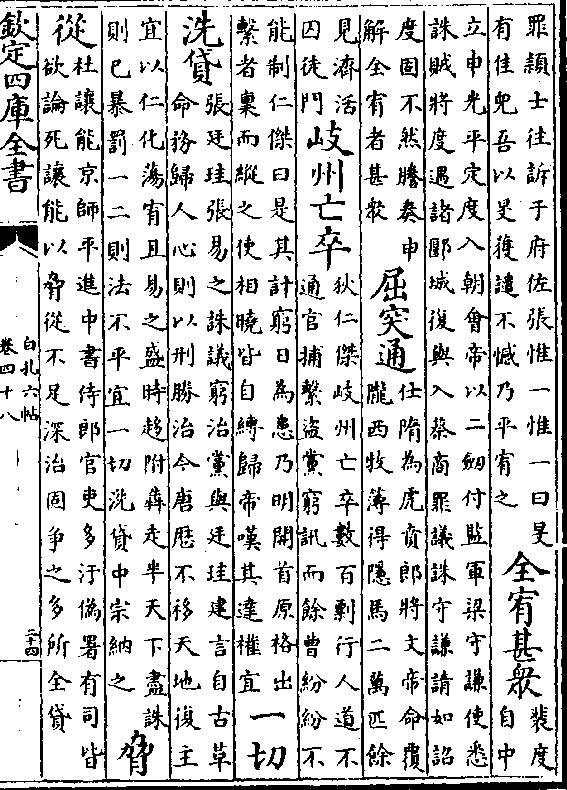 罪頴士往訴于府佐張惟一惟一曰旻
有佳兒吾以旻獲譴不憾乃平宥之
全宥甚衆
裴度
自中
立申光平定度入朝會帝以二劔付監軍梁守謙使悉
誅賊將度遇諸郾城復與入蔡商罪議誅守謙請如詔
度固不然騰奏申
解全宥者甚衆
屈突通
仕隋為虎賁郎將文帝命覆
隴西牧簿得隱馬二萬匹餘
見濟活
囚徒門
岐州亡卒
狄仁傑岐州亡卒數百剽行人道不
通官捕繫盜黨窮訊而餘曹紛紛不
能制仁傑曰是其計窮日為患乃明開首原格出
繫者稟而縱之使相曉皆自縛歸帝嘆其達權宜
一切
洗貸
張廷珪張易之誅議窮治黨與廷珪建言自古草
命務歸人心則以刑勝治今唐厯不移天地復主
宜以仁化蕩宥且易之盛時趨附犇走半天下盡誅
則已暴罰一二則法不平宜一切洗貸中宗納之
脅
從
杜讓能京師平進中書侍郎官吏多汙偽署有司皆
欲論死讓能以脅從不足深治固爭之多所全貸
欽定四庫全書
白孔六帖
卷四十八
二十四